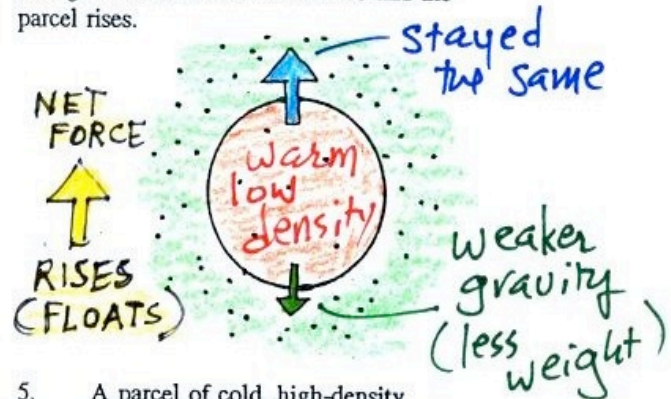 parcel rises.
stayed
the same
NET
FORCE
warm
low
density
RISES
(FLOATS)
weaker
gravity
(less
weight)
5. A parcel of cold, high-density